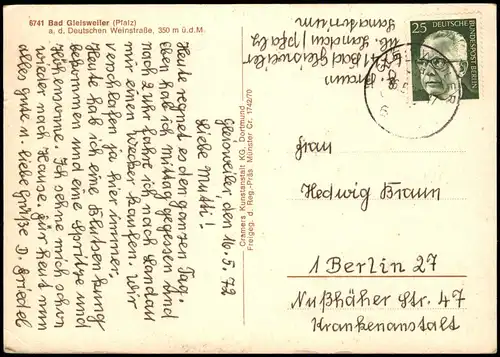 6741 Bad Gleisweiler (Pfalz)
a. d. Deutschen Weinstraße, 350 m ü.d.M.
Braun
6741 Bad Gleisweiler
üb. Landau / Pfalz
Sanatorium
Gleisweiler, den 16.5.72
Liebe Mutti!
Heute regnet es den ganzen Tag.
Eben habe ich Mittag gegessen und
nach 2 Uhr fahre ich nach Landau
mir einen Wecker kaufen. Wir
verschlafen ja hier immer.
Heute hab ich eine Blutsenkung
bekommen und eine Spritze und
Höhensonne. Ich sehne mich schon
wieder nach Hause. Für heut nun
alles gute u. liebe Grüße D.
Cramers Kunstanstalt KG, Dortmund
Freigeg. d. Reg.-Präs. Münster Cr. 1742/70
25
DEUTSCHE
BUNDESPOST BERLIN
Frau
Hedwig Braun
1 Berlin 27
Nußhäher Str. 47
Krankenanstalt